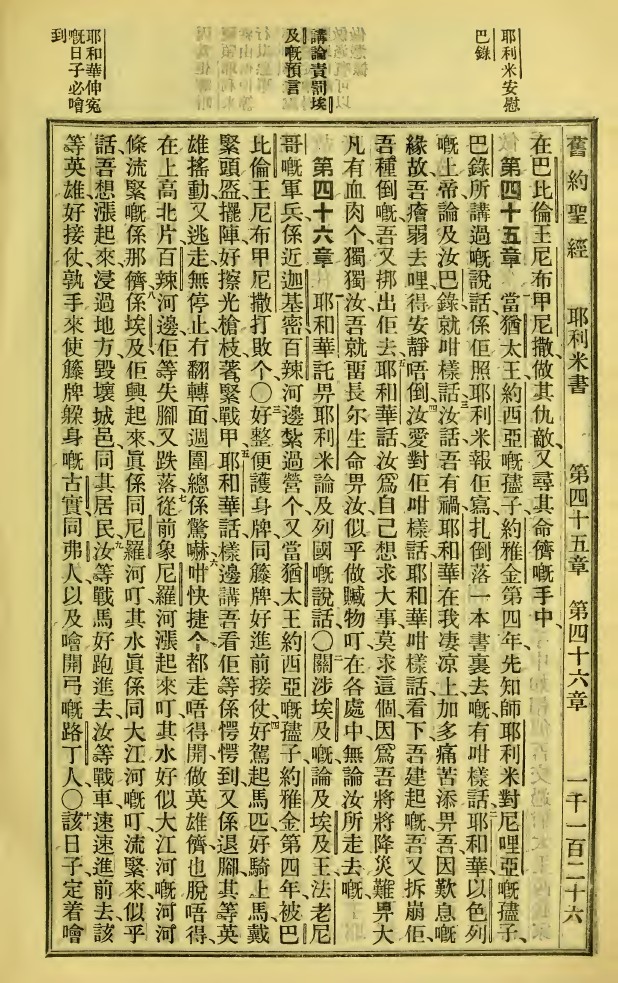 耶利米安慰
巴錄
講論責罰埃
及嘅預言
耶和華伸寃
嘅日子必噲
到
舊約聖經 耶利米書 第四十五章 第四十六章 一千一百二十六
在巴比倫王尼布甲尼撒、做其仇敵、又尋其命儕嘅手中、
第四十五章 當猶太王約西亞嘅孻子約雅金第四年、先知師耶利米對尼哩亞嘅孻子、
巴錄所講過嘅說話、係佢照耶利米報佢寫扎倒落一本書裏去嘅有咁樣話、二耶和華以色列
嘅上帝論及汝巴錄就咁樣話、三汝話吾有禍、耶和華在我凄凉上加多痛苦添畀吾、因歎息嘅
緣故、吾𤺧弱去哩、得安靜唔倒、四汝愛對佢咁樣話、耶和華咁樣話、看下吾建起嘅、吾又拆崩佢、
吾種倒嘅、吾又揤出佢去、五耶和華話、汝爲自己想求大事、莫求這個、因爲吾將將降災難畀大
凡有血肉个、獨獨汝吾就畱長尔生命畀汝、似乎做贓物叮、在各處中無論汝所走去嘅、
第四十六章 一耶和華託畀耶利米論及列國嘅說話〇二關涉埃及嘅論及埃及王法老尼
哥嘅軍兵、係近迦基密百辣河邊紮過營个、又當猶太王約西亞嘅孻子、約雅金第四年、被巴
比倫王尼布甲尼撒打敗个〇三好整便護身牌同籐牌、好進前接仗、四好駕起馬匹、好騎上馬、戴
緊頭盔擺陣、好擦光槍枝、著緊戰甲、五耶和華話、樣邊講吾看佢等係愕愕到、又係退腳、其等英
雄搖動、又逃走無停止冇翻轉面、週圍總係驚嚇咁、六快捷个都走唔得開、做英雄儕也脫唔得、
在上高北片百辣河邊、佢等失腳又跌落從前、七象尼羅河漲起來叮、其水好似大江河嘅河河
條流緊嘅、係那儕、八係埃及佢興起來、眞係同尼羅河叮、其水眞係同大江河嘅叮、流緊來、似乎
話、吾想漲起來、浸過地方、毀壞城邑、同其居民、九汝等戰馬好跑進去、汝等戰車、速速進前去、該
等英雄好接仗、孰手來使籐牌躲身嘅古實同弗人、以及噲開弓嘅路丁人、〇十該日子定着噲